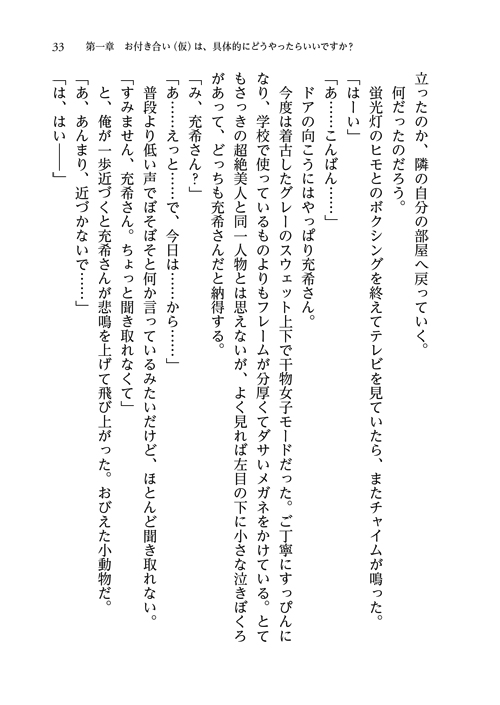 33　第一章　お付き合い（仮）は、具体的にどうやったらいいですか？
立ったのか、隣の自分の部屋へ戻っていく。
　何だったのだろう。
　蛍光灯のヒモとのボクシングを終えてテレビを見ていたら、またチャイムが鳴った。
「はーい」
「あ……こんばん……」
　ドアの向こうにはやっぱり充希さん。
　今度は着古したグレーのスウェット上下で干物女子モードだった。ご丁寧にすっぴんに
なり、学校で使っているものよりもフレームが分厚くてダサいメガネをかけている。とて
もさっきの超絶美人と同一人物とは思えないが、よく見れば左目の下に小さな泣きぼくろ
があって、どっちも充希さんだと納得する。
「み、充希さん？」
「あ……えっと……で、今日は……から……」
　普段より低い声でぼそぼそと何か言っているみたいだけど、ほとんど聞き取れない。
「すみません、充希さん。ちょっと聞き取れなくて」
　と、俺が一歩近づくと充希さんが悲鳴を上げて飛び上がった。おびえた小動物だ。
「あ、あんまり、近づかないで……」
「は、はい――」